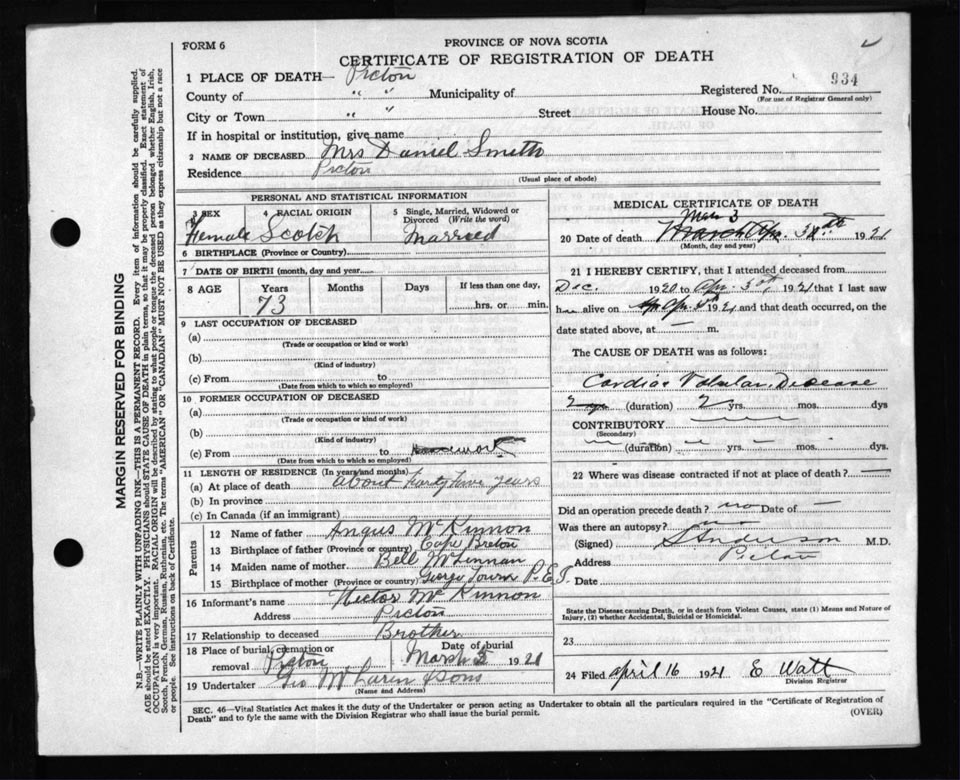 FORM 6
PROVINCE OF NOVA SCOTIA
CERTIFICATE OF REGISTRATION OF DEATH
1 PLACE OF DEATH— Pictou
County of " " Municipality of
Registered No. 934
(For use of Registrar General only)
City or Town " " Street House No.
If in hospital or institution, give name
2 NAME OF DECEASED Mrs Daniel Smith
Residence Pictou
(Usual place of abode)
PERSONAL AND STATISTICAL INFORMATION
3 SEX 4 RACIAL ORIGIN 5 Single, Married, Widowed or Divorced (Write the word)
Female Scotch Married
6 BIRTHPLACE (Province or Country)
7 DATE OF BIRTH (month, day and year)
8 AGE Years Months Days If less than one day,
73 hrs. or min.
9 LAST OCCUPATION OF DECEASED
(a)
(Trade or occupation or kind or work)
(b)
(Kind of industry)
(c) From to
(Date from which to which so employed)
10 FORMER OCCUPATION OF DECEASED
(a)
(Trade or occupation or kind of work)
(b)
(Kind of industry)
(c) From to
(Date from which to which so employed)
11 LENGTH OF RESIDENCE (In years and months)
(a) At place of death about forty five years
(b) In province
(c) In Canada (if an immigrant)
Parents
12 Name of father Angus McKinnon
13 Birthplace of father (Province or country) Cape Breton
14 Maiden name of mother Bell McLennan
15 Birthplace of mother (Province or country) George Town P.E.I.
16 Informant's name Hector McKinnon
Address Pictou
17 Relationship to deceased Brother
18 Place of burial, cremation or removal Pictou Date of burial March 5 1921
19 Undertaker Geo McLaren & Sons
(Name and Address)
MEDICAL CERTIFICATE OF DEATH
Mar 3
20 Date of death March Apr. 1921
(Month, day and year)
21 I HEREBY CERTIFY, that I attended deceased from
Dec. 1920 to Apr. 3rd 1921 that I last saw
h alive on Apr. 3rd 1921 and that death occurred, on the
date stated above, at — m.
The CAUSE OF DEATH was as follows:
Cardiac Valvular Disease
2 yrs (duration) 2 yrs. mos. dys
CONTRIBUTORY
(Secondary)
(duration) yrs. mos. dys
22 Where was disease contracted if not at place of death? —
Did an operation precede death? no Date of —
Was there an autopsy? no
(Signed) S Anderson M.D.
Address Pictou
Date
State the Disease causing Death, or in death from Violent Causes, state (1) Means and Nature of
Injury, (2) whether Accidental, Suicidal or Homicidal.
23
24 Filed April 16 1921 E Watt
Division Registrar
SEC. 46—Vital Statistics Act makes it the duty of the Undertaker or person acting as Undertaker to obtain all the particulars required in the "Certificate of Registration of
Death" and to fyle the same with the Division Registrar who shall issue the burial permit.
(OVER)
MARGIN RESERVED FOR BINDING
N.B.—WRITE PLAINLY WITH UNFADING INK—THIS IS A PERMANENT RECORD. Every item of information should be carefully supplied.
AGE should be stated EXACTLY. PHYSICIANS should STATE CAUSE OF DEATH in plain terms, so that it may be properly classified. Exact statement of
OCCUPATION is very important. RACIAL ORIGIN will be described by stating to what people or tongue the deceased person belonged whether English, Irish,
Scotch, French, German, Russian, Ruthenian, etc. The terms "AMERICAN" OR "CANADIAN" MUST NOT BE USED as they express citizenship but not a race
or people. See instructions on back of Certificate.